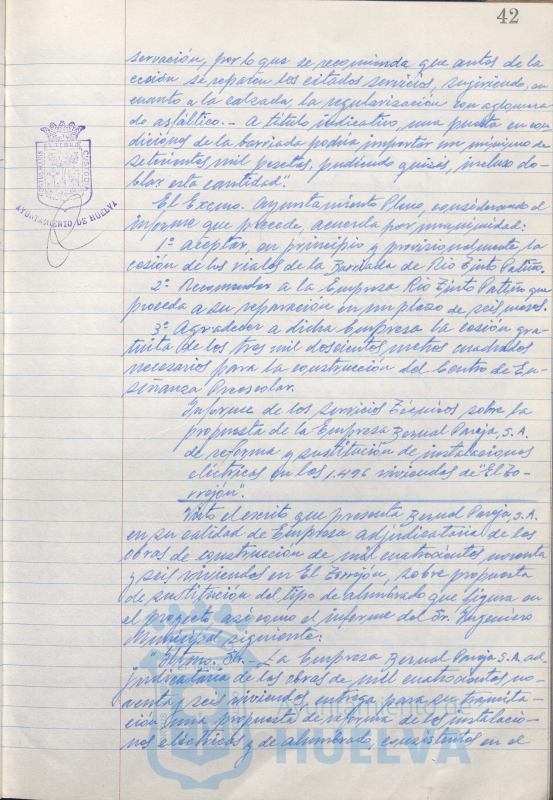 42
servación, por lo que se recomienda que antes de la
cesión se reparen los citados servicios, sugiriendo, en
cuanto a la calzada, la regularización con aglomera-
do asfáltico.- A título indicativo, una puesta en con
diciones de la barriada podría importar un mínimo de
setecientas mil pesetas, pudiendo quizás, incluso do-
blar esta cantidad".
El Excmo. Ayuntamiento Pleno, considerando el
informe que precede, acuerda por unanimidad:
1º Aceptar, en principio y provisionalmente la
cesión de los viales de la Barriada de Rio Tinto Patiño.
2º Recomendar a la Empresa Rio Tinto Patiño que
proceda a su reparación en un plazo de seis meses.
3º Agradecer a dicha Empresa la cesión gra-
tuita de los tres mil doscientos metros cuadrados
necesarios para la construcción del Centro de En-
señanza Preescolar.
Informe de los Servicios Técnicos sobre la
propuesta de la Empresa Bernal Pareja, S.A.
de reforma y sustitución de instalaciones
eléctricas en las 1.496 viviendas de "El To-
rrejón".
Visto el escrito que presenta Bernal Pareja, S.A.
en su calidad de Empresa adjudicataria de las
obras de construcción de mil cuatrocientas noventa
y seis viviendas en El Torrejón, sobre propuesta
de sustitución del tipo de alumbrado que figura en
el proyecto, así como el informe del Sr. Ingeniero
Municipal siguiente:
"Iltmo. Sr.- La Empresa Bernal Pareja S.A. ad-
judicataria de las obras de mil cuatrocientas no-
venta y seis viviendas entrega para su tramita-
ción una propuesta de reforma de las instalacio-
nes eléctricas y de alumbrado, consistentes en el
AYUNTAMIENTO DE HUELVA
Ayuntamiento de
HUELVA